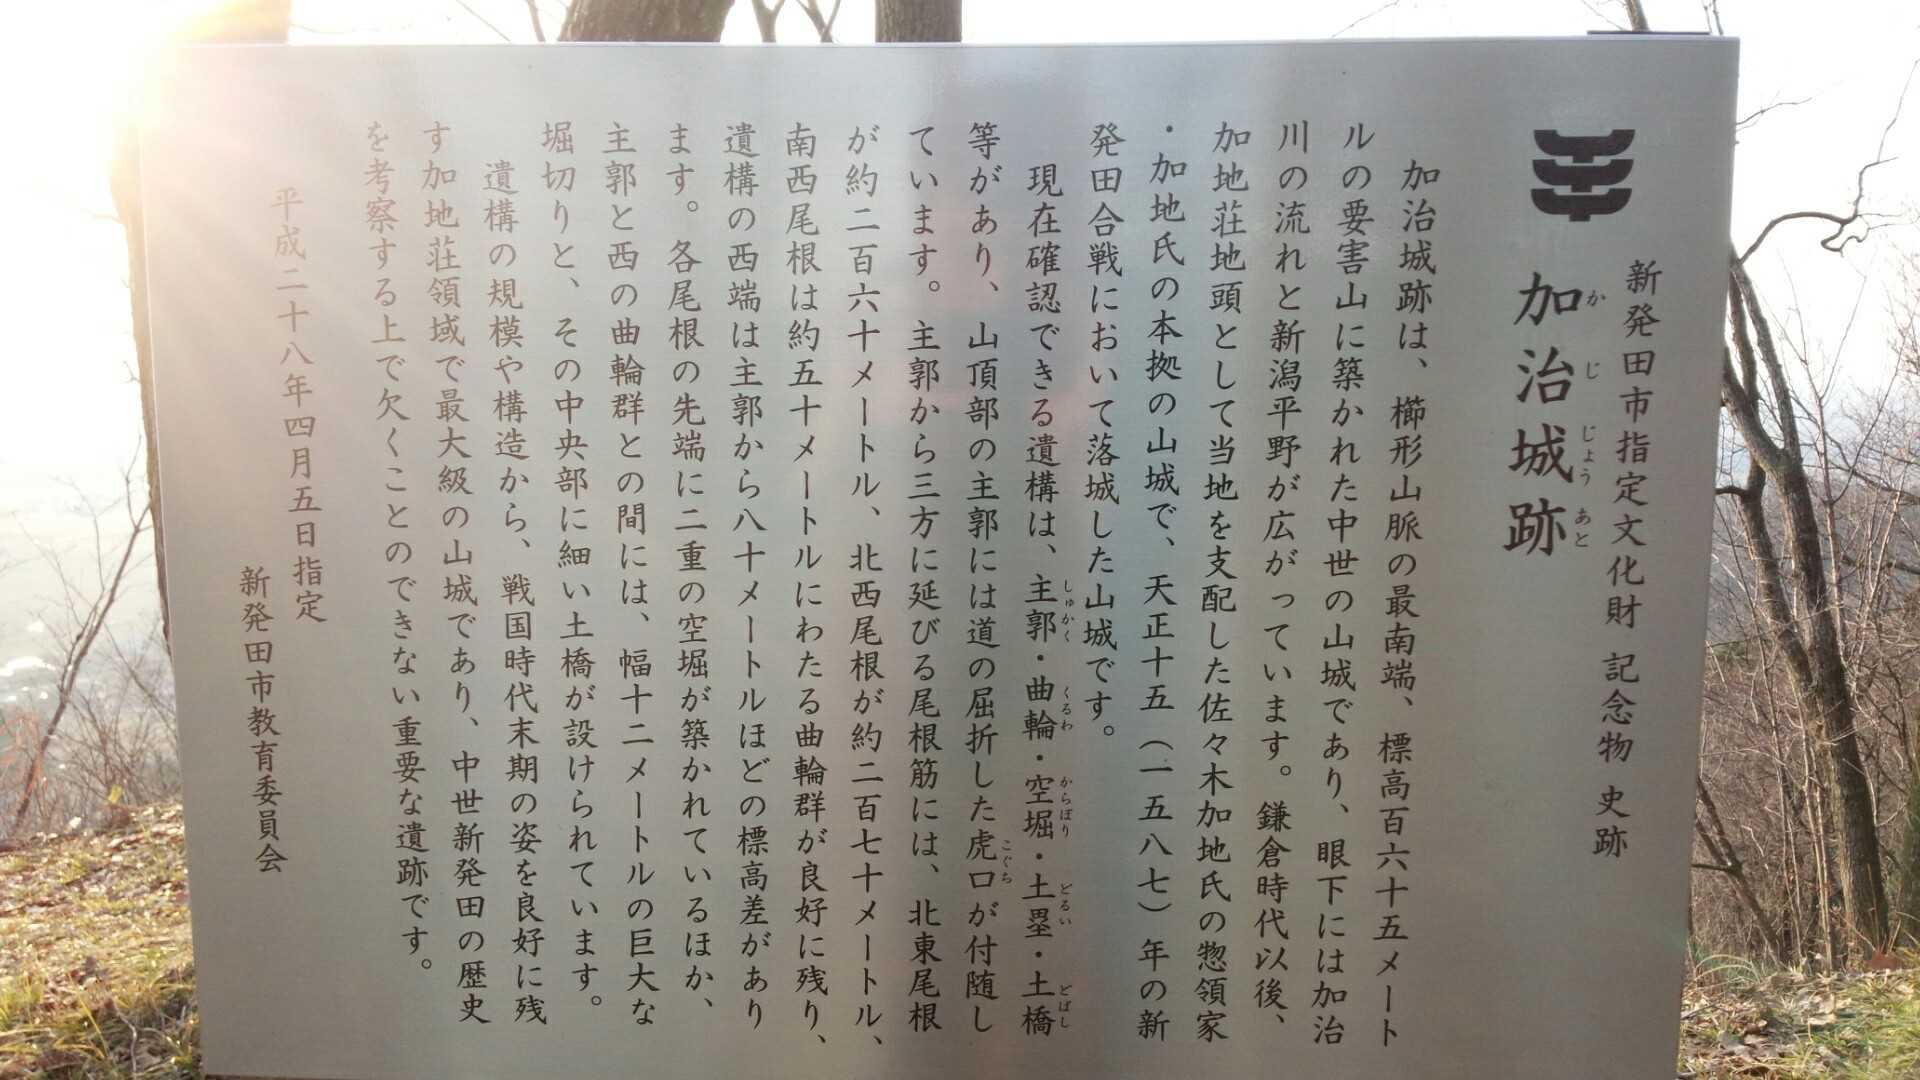 新発田市指定文化財 記念物 史跡
加治城跡
かじじょうあと
加治城跡は、櫛形山脈の最南端、標高百六十五メート
ルの要害山に築かれた中世の山城であり、眼下には加治
川の流れと新潟平野が広がっています。鎌倉時代以後、
加地荘地頭として当地を支配した佐々木加地氏の惣領家
・加地氏の本拠の山城で、天正十五（一五八七）年の新
発田合戦において落城した山城です。
現在確認できる遺構は、主郭・曲輪・空堀・土塁・土橋
しゅかく くるわ からぼり どるい どばし
等があり、山頂部の主郭には道の屈折した虎口が付随し
こぐち
ています。主郭から三方に延びる尾根筋には、北東尾根
が約二百六十メートル、北西尾根が約二百七十メートル、
南西尾根は約五十メートルにわたる曲輪群が良好に残り、
遺構の西端は主郭から八十メートルほどの標高差があり
ます。各尾根の先端に二重の空堀が築かれているほか、
主郭と西の曲輪群との間には、幅十二メートルの巨大な
堀切りと、その中央部に細い土橋が設けられています。
遺構の規模や構造から、戦国時代末期の姿を良好に残
す加地荘領域で最大級の山城であり、中世新発田の歴史
を考察する上で欠くことのできない重要な遺跡です。
平成二十八年四月五日指定
新発田市教育委員会